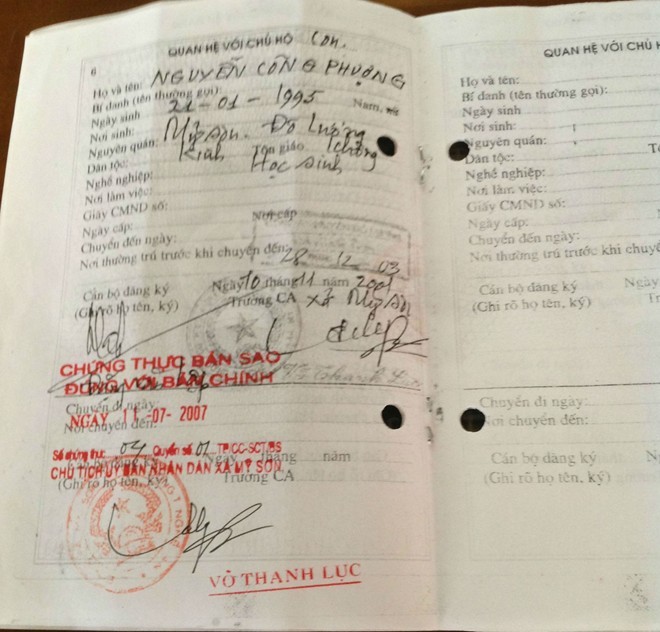 6
QUAN HỆ VỚI CHỦ HỘ Con.
Họ và tên: NGUYỄN CÔNG PHƯỢNG
Bí danh (tên thường gọi):
Ngày sinh 21-01-1995 Nam, nữ
Nơi sinh:
Nguyên quán: Mỹ Sơn. Đô Lương
Dân tộc: Kinh Tôn giáo không
Nghề nghiệp: Học sinh
Nơi làm việc:
Giấy CMND số:
Ngày cấp: Nơi cấp
Chuyển đến ngày:
Nơi thường trú trước khi chuyển đến: 28 12 03
Cán bộ đăng ký Ngày 10 tháng 11 năm 2001
(Ghi rõ họ tên, ký) Trưởng CA xã Mỹ Sơn
CHỨNG THỰC BẢN SAO
ĐÚNG VỚI BẢN CHÍNH
Chuyển đi ngày:
NGÀY 11-07-2007
Nơi chuyển đến:
Số chứng thực 04 Quyển số 01 TP/CC-SCT/BS
Ngày tháng năm
CHỦ TỊCH ỦY BAN NHÂN DÂN XÃ MỸ SƠN
(Ghi rõ họ tên, ký) Trưởng CA
VÕ THANH LỤC
QUAN HỆ VỚI CHỦ H
Họ và tên:
Bí danh (tên thường gọi):
Ngày sinh
Nơi sinh:
Nguyên quán:
Dân tộc: T
Nghề nghiệp:
Nơi làm việc:
Giấy CMND số:
Ngày cấp:
Chuyển đến ngày:
Nơi thường trú trước khi chuyển
Cán bộ đăng ký Ngày
(Ghi rõ họ tên, ký)
Chuyển đi ngày:
Nơi chuyển đến:
Cán bộ đăng ký
(Ghi rõ họ tên, ký)